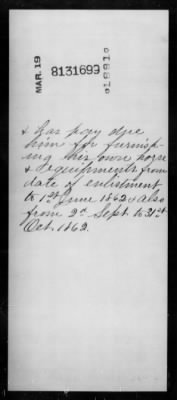 MAR. 19
8131699
& has pay due
him for furnish
ing his own horse
& equipments from
date of enlistment
to 1st June 1862 & also
from 2d Sept. to 21st
Oct. 1862.